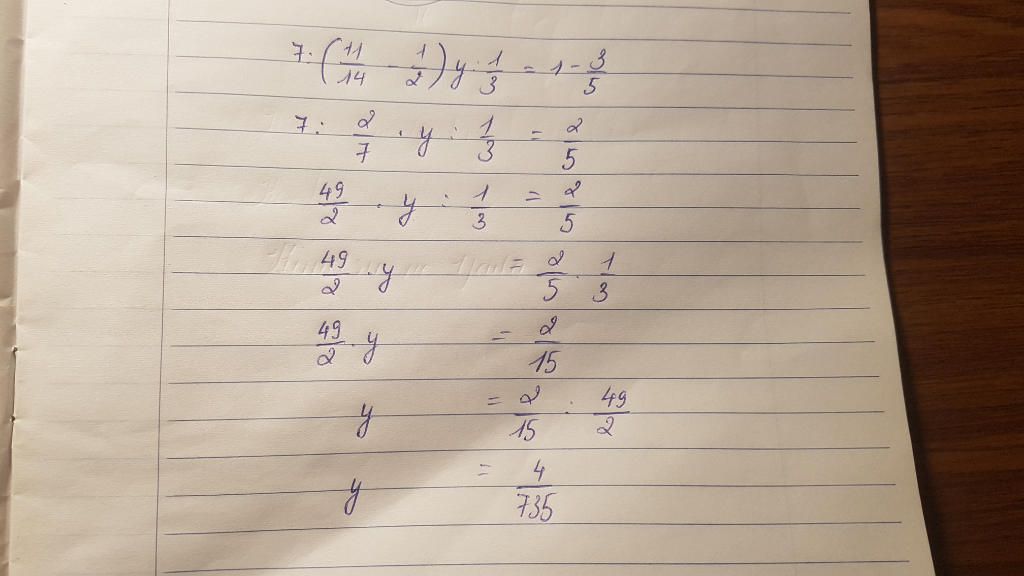 7:(11/14 - 1/2) y : 1/3 = 1 - 3/5
7 : 2/7 · y : 1/3 = 2/5
49/2 · y : 1/3 = 2/5
49/2 · y = 2/5 · 1/3
49/2 · y = 2/15
y = 2/15 : 49/2
y = 4/735